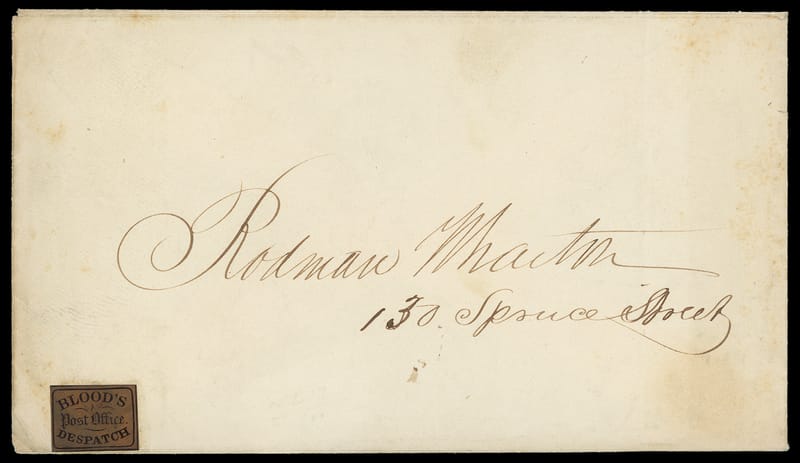 Rodman Wharton
130 Spruce Street
BLOOD'S
Post Office.
DESPATCH